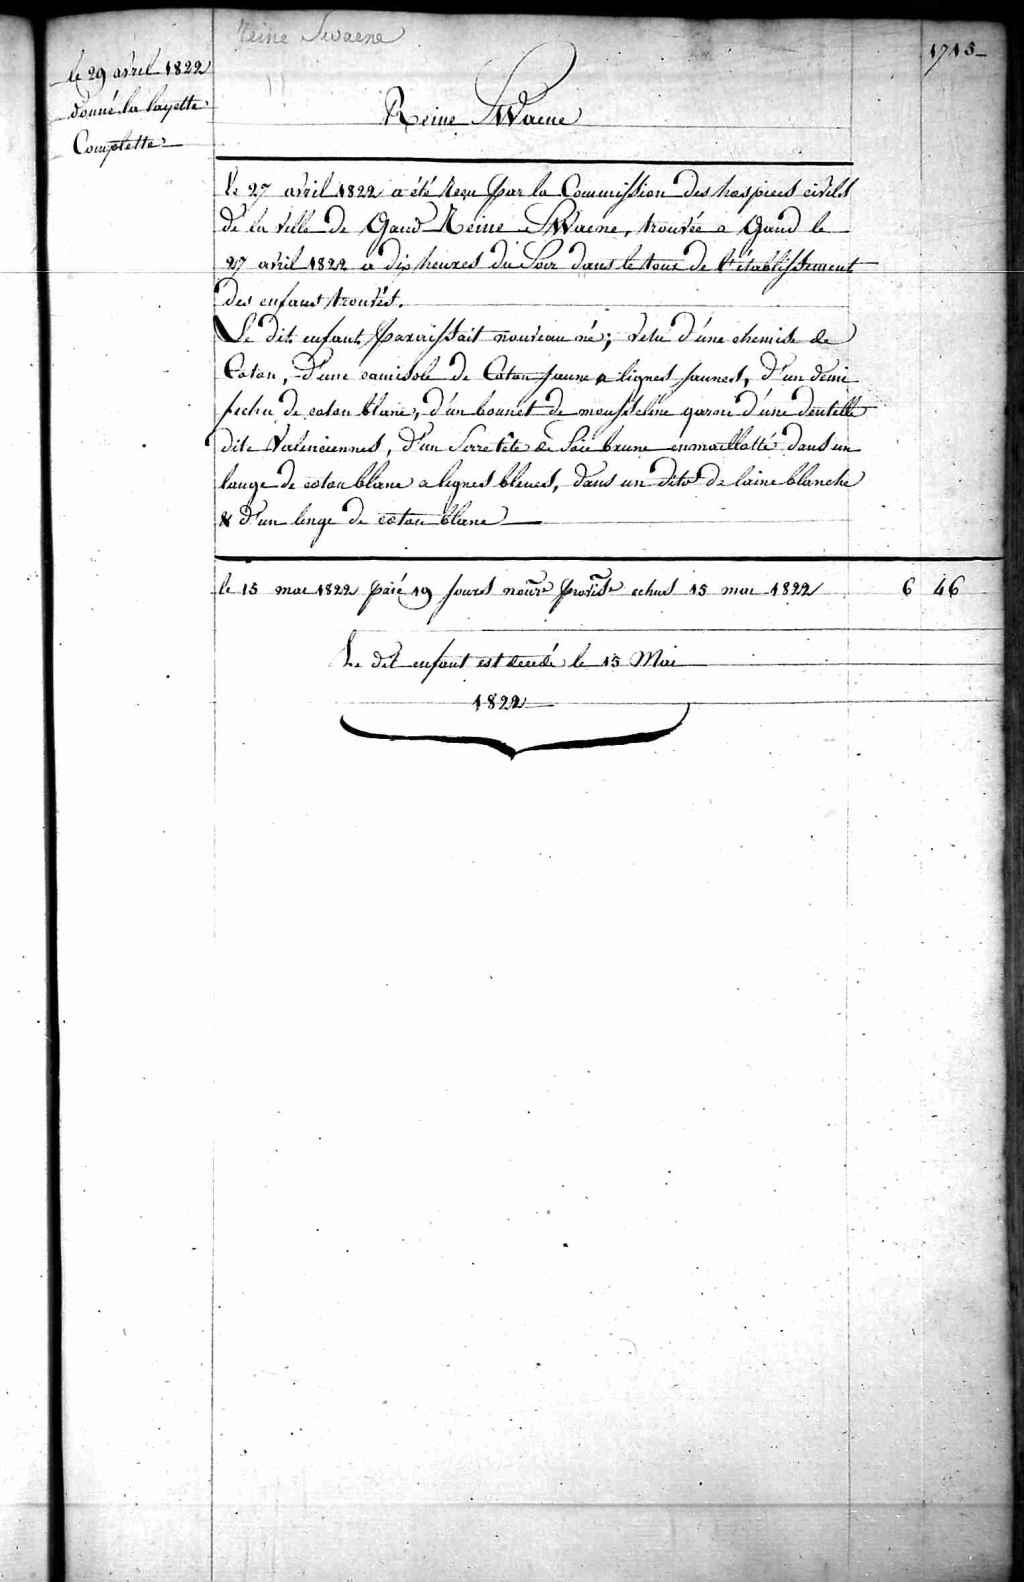 Reine Swaene
1715
le 29 avril 1822
donné la layette
Complette
Reine SWaene
le 27 avril 1822 a été reçu par la Commission des hospices civils
de la ville de Gand Reine SWaene, trouvée a Gand le
27 avril 1822 a dix heures du Soir dans le tour de l'établissement
des enfants trouvés.
Le dit enfant paraissait nouveau né; vetu d'une chemise de
Coton, d'une camisole de Coton jaune a lignes jaunes, d'un demi
fichu de coton blanc, d'un bonnet de mousseline garni d'une dentelle
dite Valenciennes, d'un Serre tête de Soie brune enmaillotté dans un
lange de coton blanc a lignes bleues, dans un dito de laine blanche
& d'un linge de coton blanc
le 15 mai 1822 paié 19 jours nourre provise echus 15 mai 1822 6 46
Le dit enfant est decedé le 15 Mai
1822